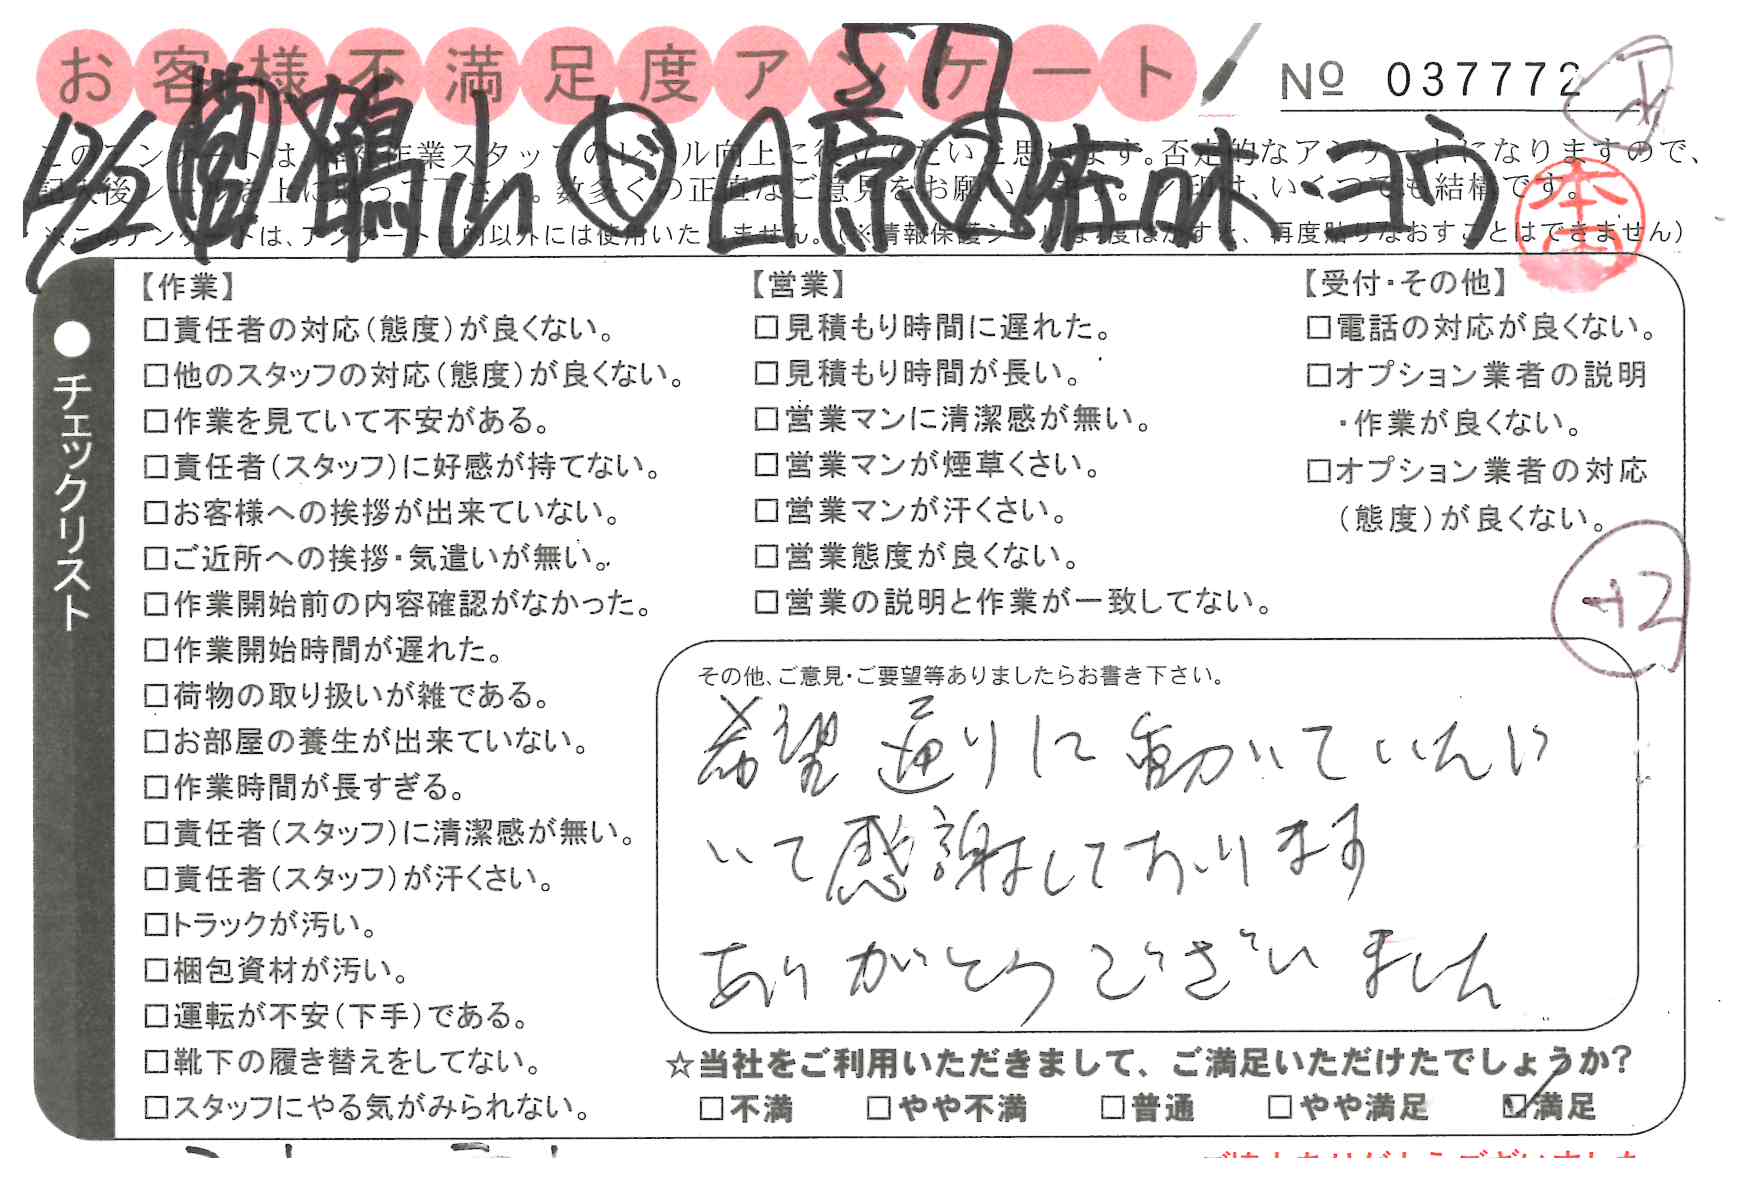 お客様不満足度アンケート
57
№ 037772
12/2 営 鶴山 ド 日京 佐々木・ヨウ
本田
このアンケートは、弊社作業スタッフのレベル向上に役立てたいと思います。否定的なアンケートになりますので、
記入後シールを上に貼って下さい。数多くの正直なご意見をお願いします。レ印は、いくつでも結構です。
※このアンケートは、アンケート目的以外には使用いたしません。(※情報保護シールは1度はがすと、再度貼りなおすことはできません)
●チェックリスト
【作業】
□責任者の対応(態度)が良くない。
□他のスタッフの対応(態度)が良くない。
□作業を見ていて不安がある。
□責任者(スタッフ)に好感が持てない。
□お客様への挨拶が出来ていない。
□ご近所への挨拶・気遣いが無い。
□作業開始前の内容確認がなかった。
□作業開始時間が遅れた。
□荷物の取り扱いが雑である。
□お部屋の養生が出来ていない。
□作業時間が長すぎる。
□責任者(スタッフ)に清潔感が無い。
□責任者(スタッフ)が汗くさい。
□トラックが汚い。
□梱包資材が汚い。
□運転が不安(下手)である。
□靴下の履き替えをしてない。
□スタッフにやる気がみられない。
【営業】
□見積もり時間に遅れた。
□見積もり時間が長い。
□営業マンに清潔感が無い。
□営業マンが煙草くさい。
□営業マンが汗くさい。
□営業態度が良くない。
□営業の説明と作業が一致してない。
【受付・その他】
□電話の対応が良くない。
□オプション業者の説明
・作業が良くない。
□オプション業者の対応
(態度)が良くない。
+2
その他、ご意見・ご要望等ありましたらお書き下さい。
希望通りに動いていただ
いて感謝しております
ありがとうございました
☆当社をご利用いただきまして、ご満足いただけたでしょうか?
□不満 □やや不満 □普通 □やや満足 ☑満足